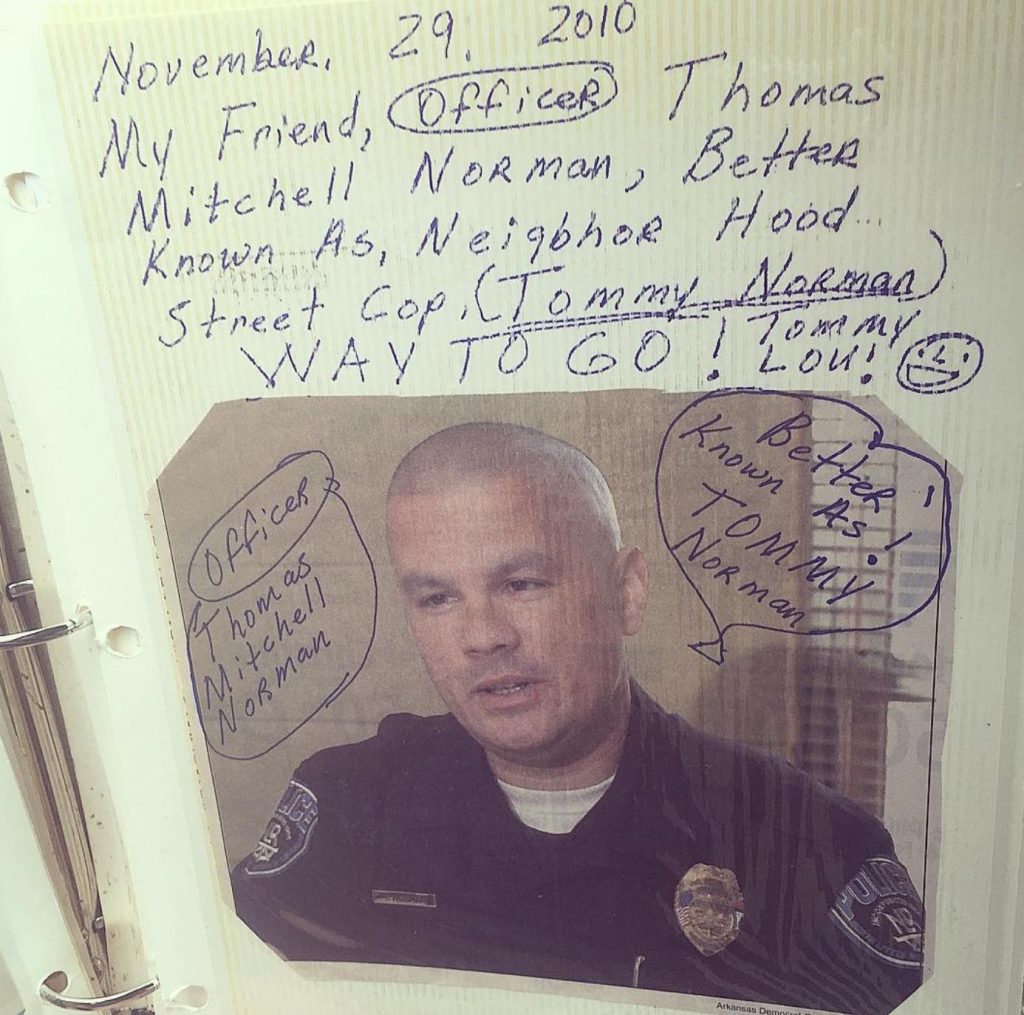 November. 29. 2010
My Friend, Officer Thomas
Mitchell Norman, Better
Known As, Neigbhor Hood...
Street Cop, (Tommy Norman)
WAY TO GO! Tommy
Lou!
Officer
Thomas
Mitchell
Norman
Better
Known As!
TOMMY
Norman
POLICE
POLICE
Arkansas Democrat